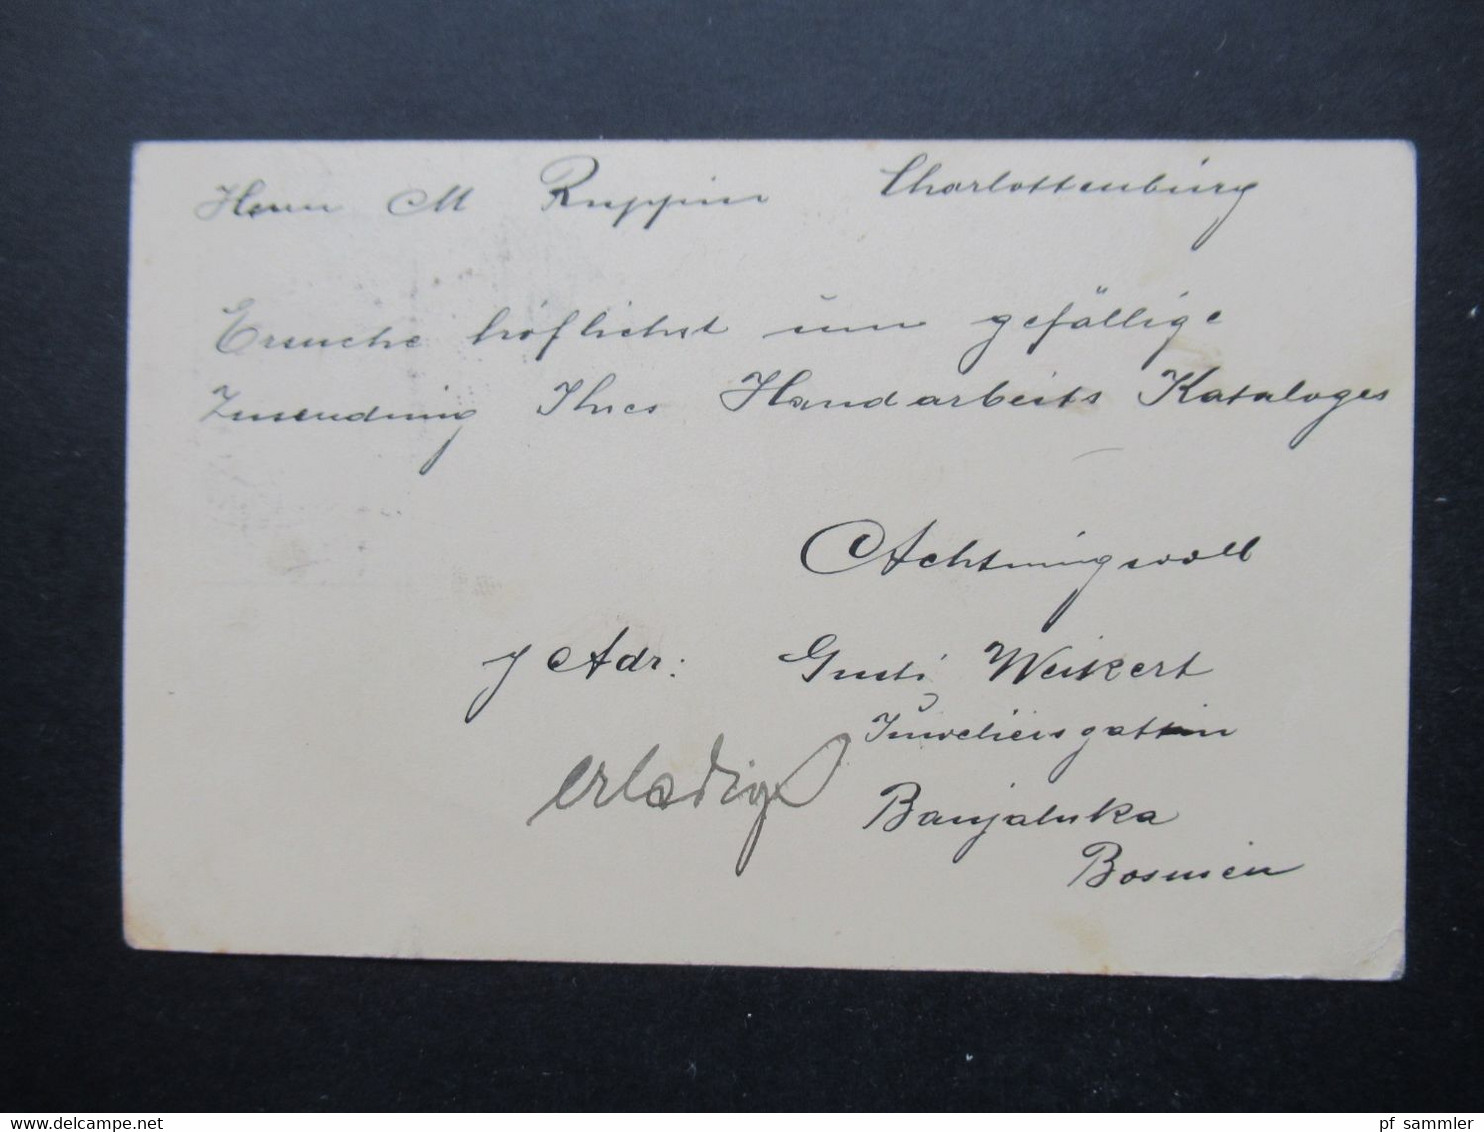 Herrn M Ruppin Charlottenburg
Ersuche höflichst um gefällige
Zusendung Ihres Handarbeits Kataloges
Achtungsvoll
Adr: Gusti Weikert
Juweliersgattin
erledigt
Banjaluka
Bosnien
delcampe.net
pf_sammler